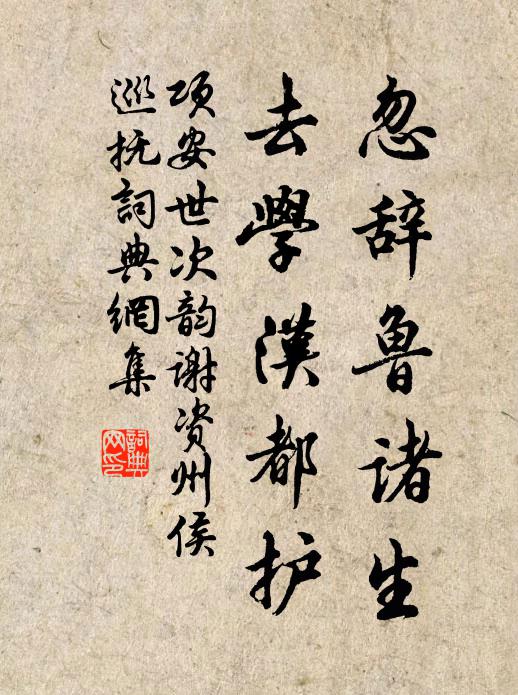 忽辞鲁诸生
去學漢都护
项安世次韵谢资州侯
巡抚詞典網集
詞典
网印